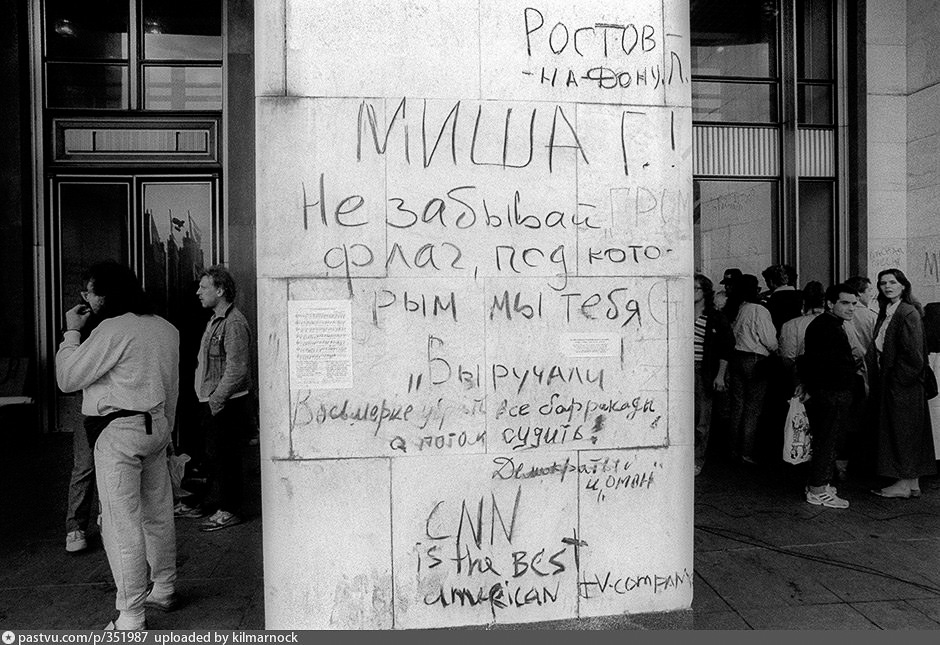 Ростов-
-на-Дону. Л.
МИША Г.!
Не забывай
флаг, под кото-
рым мы тебя
"Выручали!
Восьмерке убрать все баррикады
а потом судить!
Демократы
и "ОМОН"
CNN
is the BEST
american TV-company
pastvu.com/p/351987 uploaded by kilmarnock